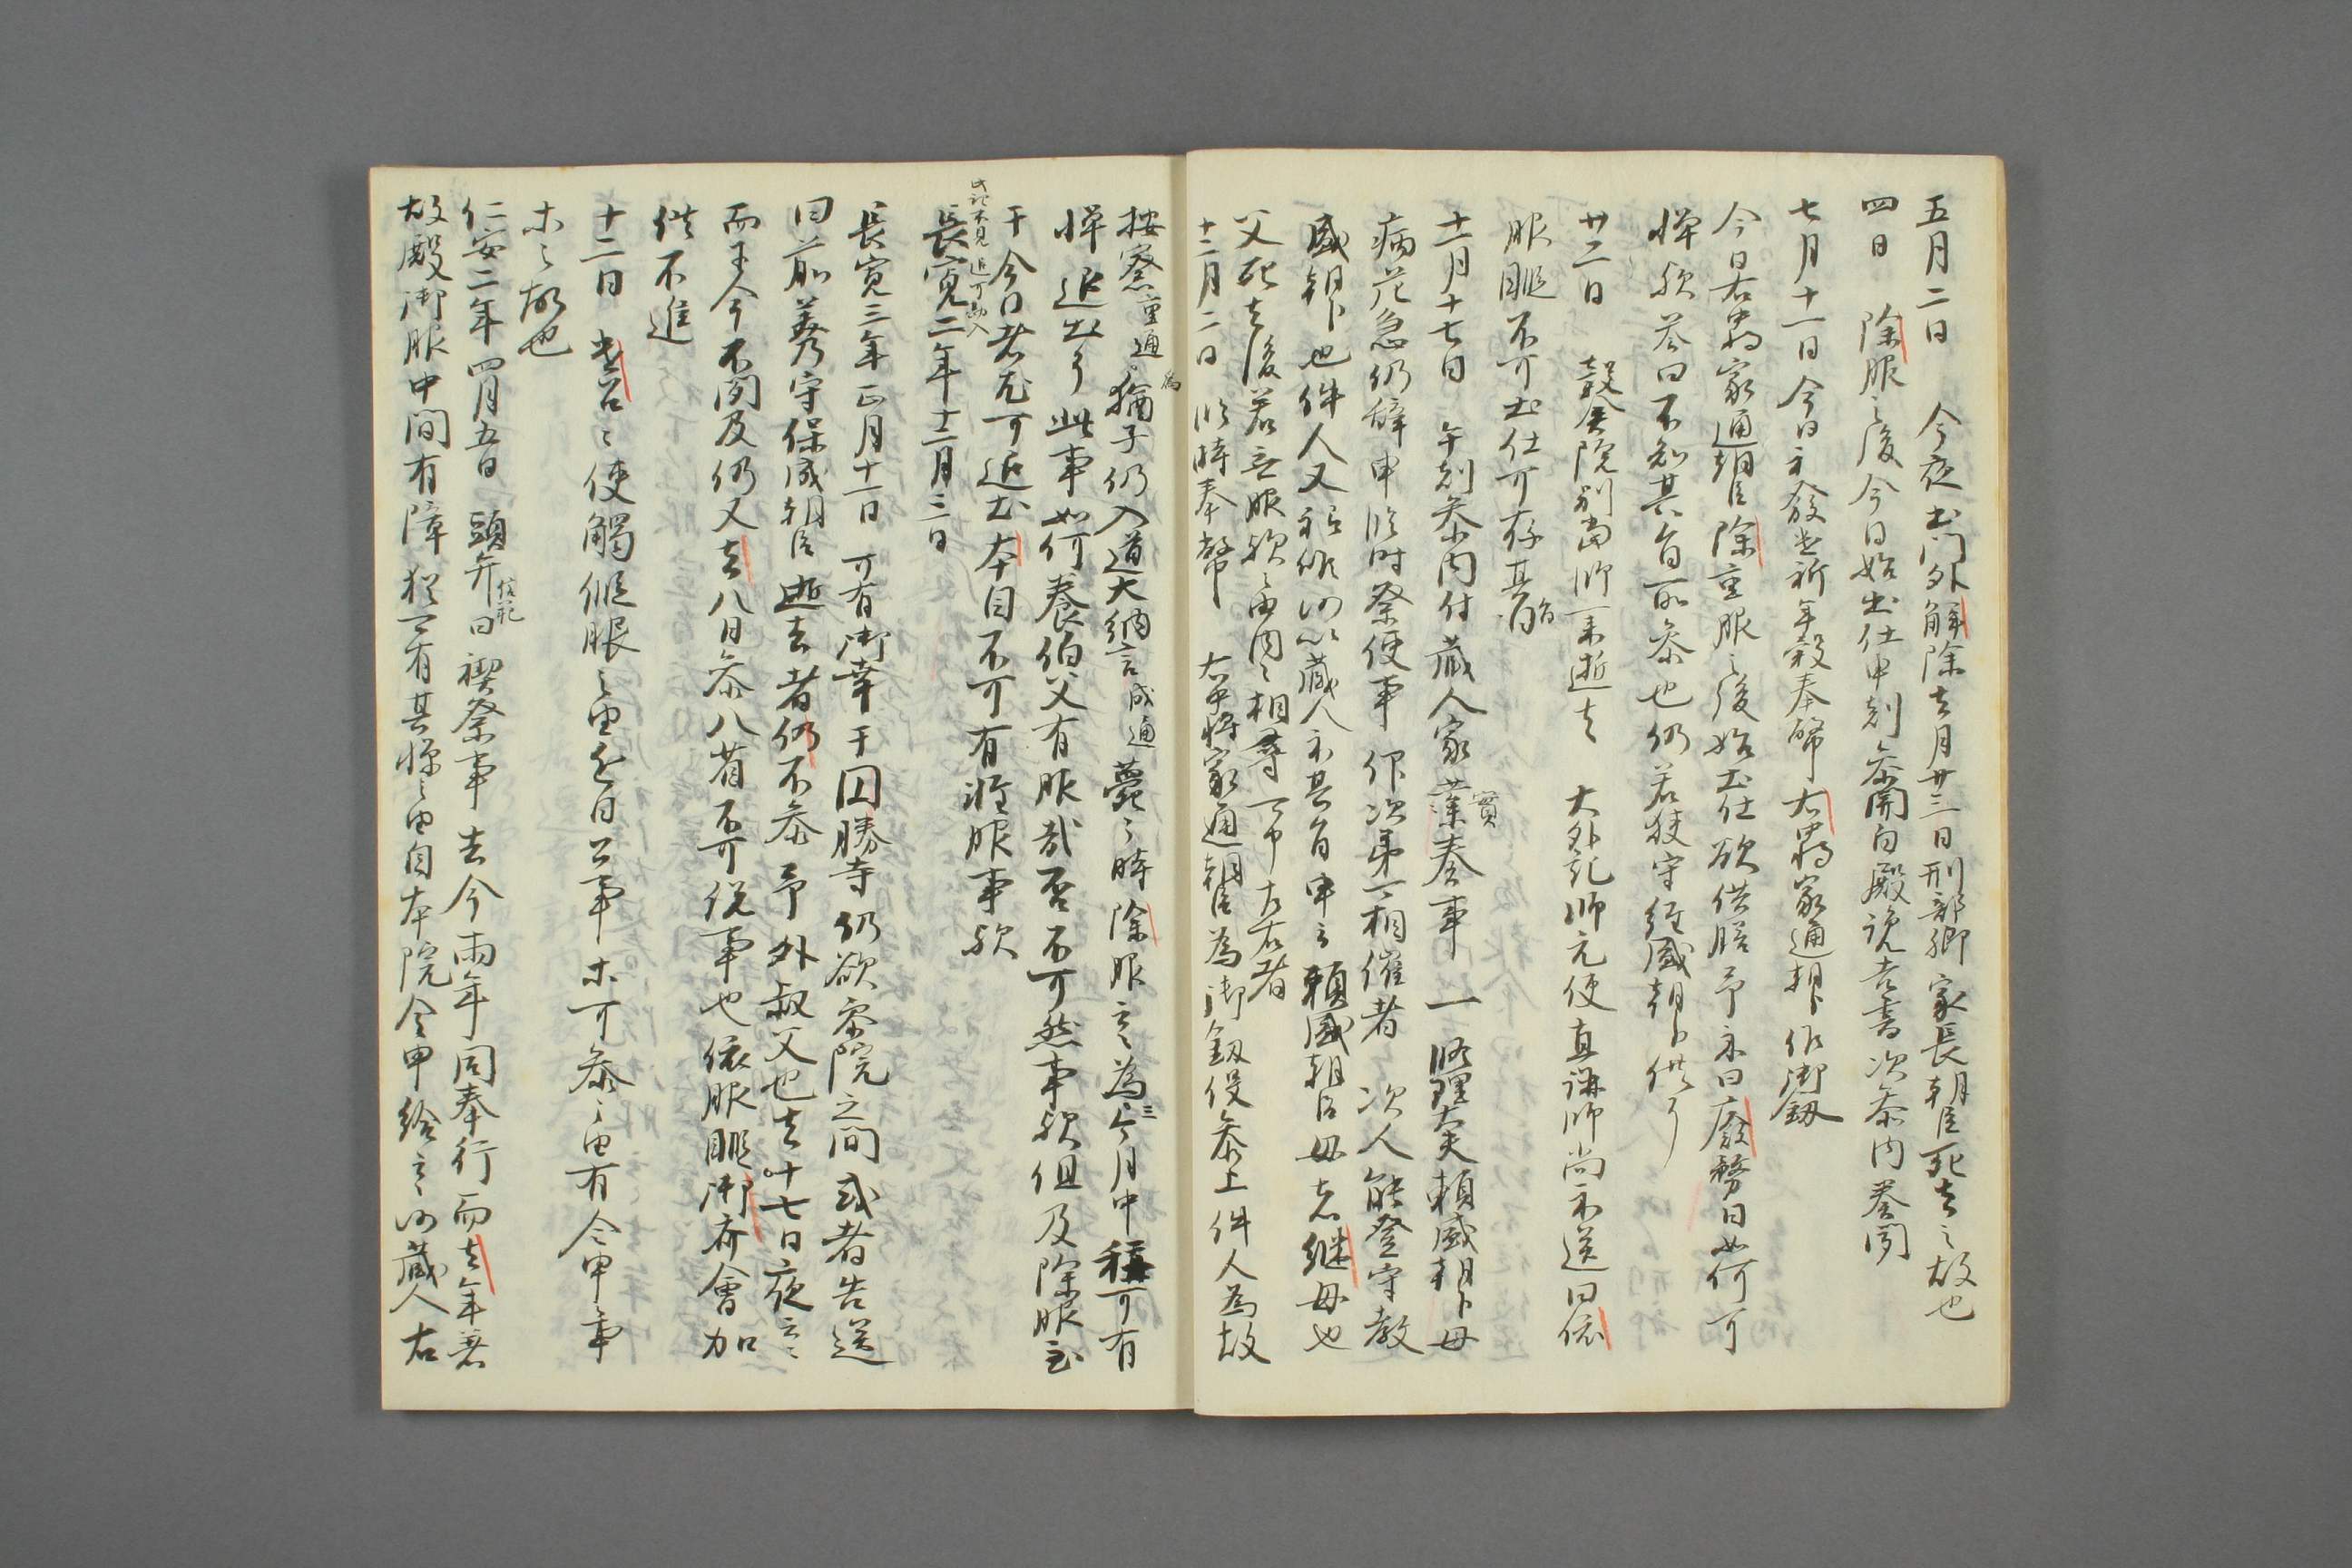 五月二日 今夜出門外解除去月廿三日刑部卿家長朝臣死去之故也
四日 除服之後今日始出仕申刻参関白殿覧吉書次参内奏聞
七月十一日今日被発遣祈年穀奉幣右中将家通朝臣作御釼
今日右中将家通朝臣除重服之後始出仕欲供膳予示曰廢務日如何可
憚歟答曰不知其旨所参也仍若狭守経盛朝臣供了
廿二日 穀倉院別当師業逝去 大外記師元使直講師尚示送曰依
服暇不可出仕可存其旨
十一月十七日 午刻参内付蔵人家実奏事 一 修理大夫頼盛朝臣母
病危急仍辞申臨時祭使事 仰次第可相催者 次人能登守教
盛朝臣也件人又祗候仍以蔵人示其旨申云頼盛朝臣母者継母也
父死去後若無服歟之由内々相尋可申左右者
十二月二日 臨時奉幣 右中将家通朝臣為御釼役参上件人為故
按察重通為猶子仍入道大納言成通薨之時除服之為三今月中称可有
憚退出了此事如何養伯父有服哉否不可然事歟但及除服至
于今日者尤可退出本自不可有従服事歟
此記不見追可勘入
長寛二年十二月三日
長寛三年正月十一日 可有御幸于円勝寺仍欲参院之間或者告送
曰前美乃守保成朝臣逝去者仍不参予外叔父也去十七日夜云々
而于今不聞及仍又去八日参八省不可従事也依服暇御斎会加
供不進
十二日 遣召々使觸假服之由近日公事等可参之由有令申事
等之故也
仁安二年四月五日 頭弁信範曰禊祭事去今両年同奉行而去年着
故殿御服中間有障猶可有其憚之由自本院令申給之仍蔵人右